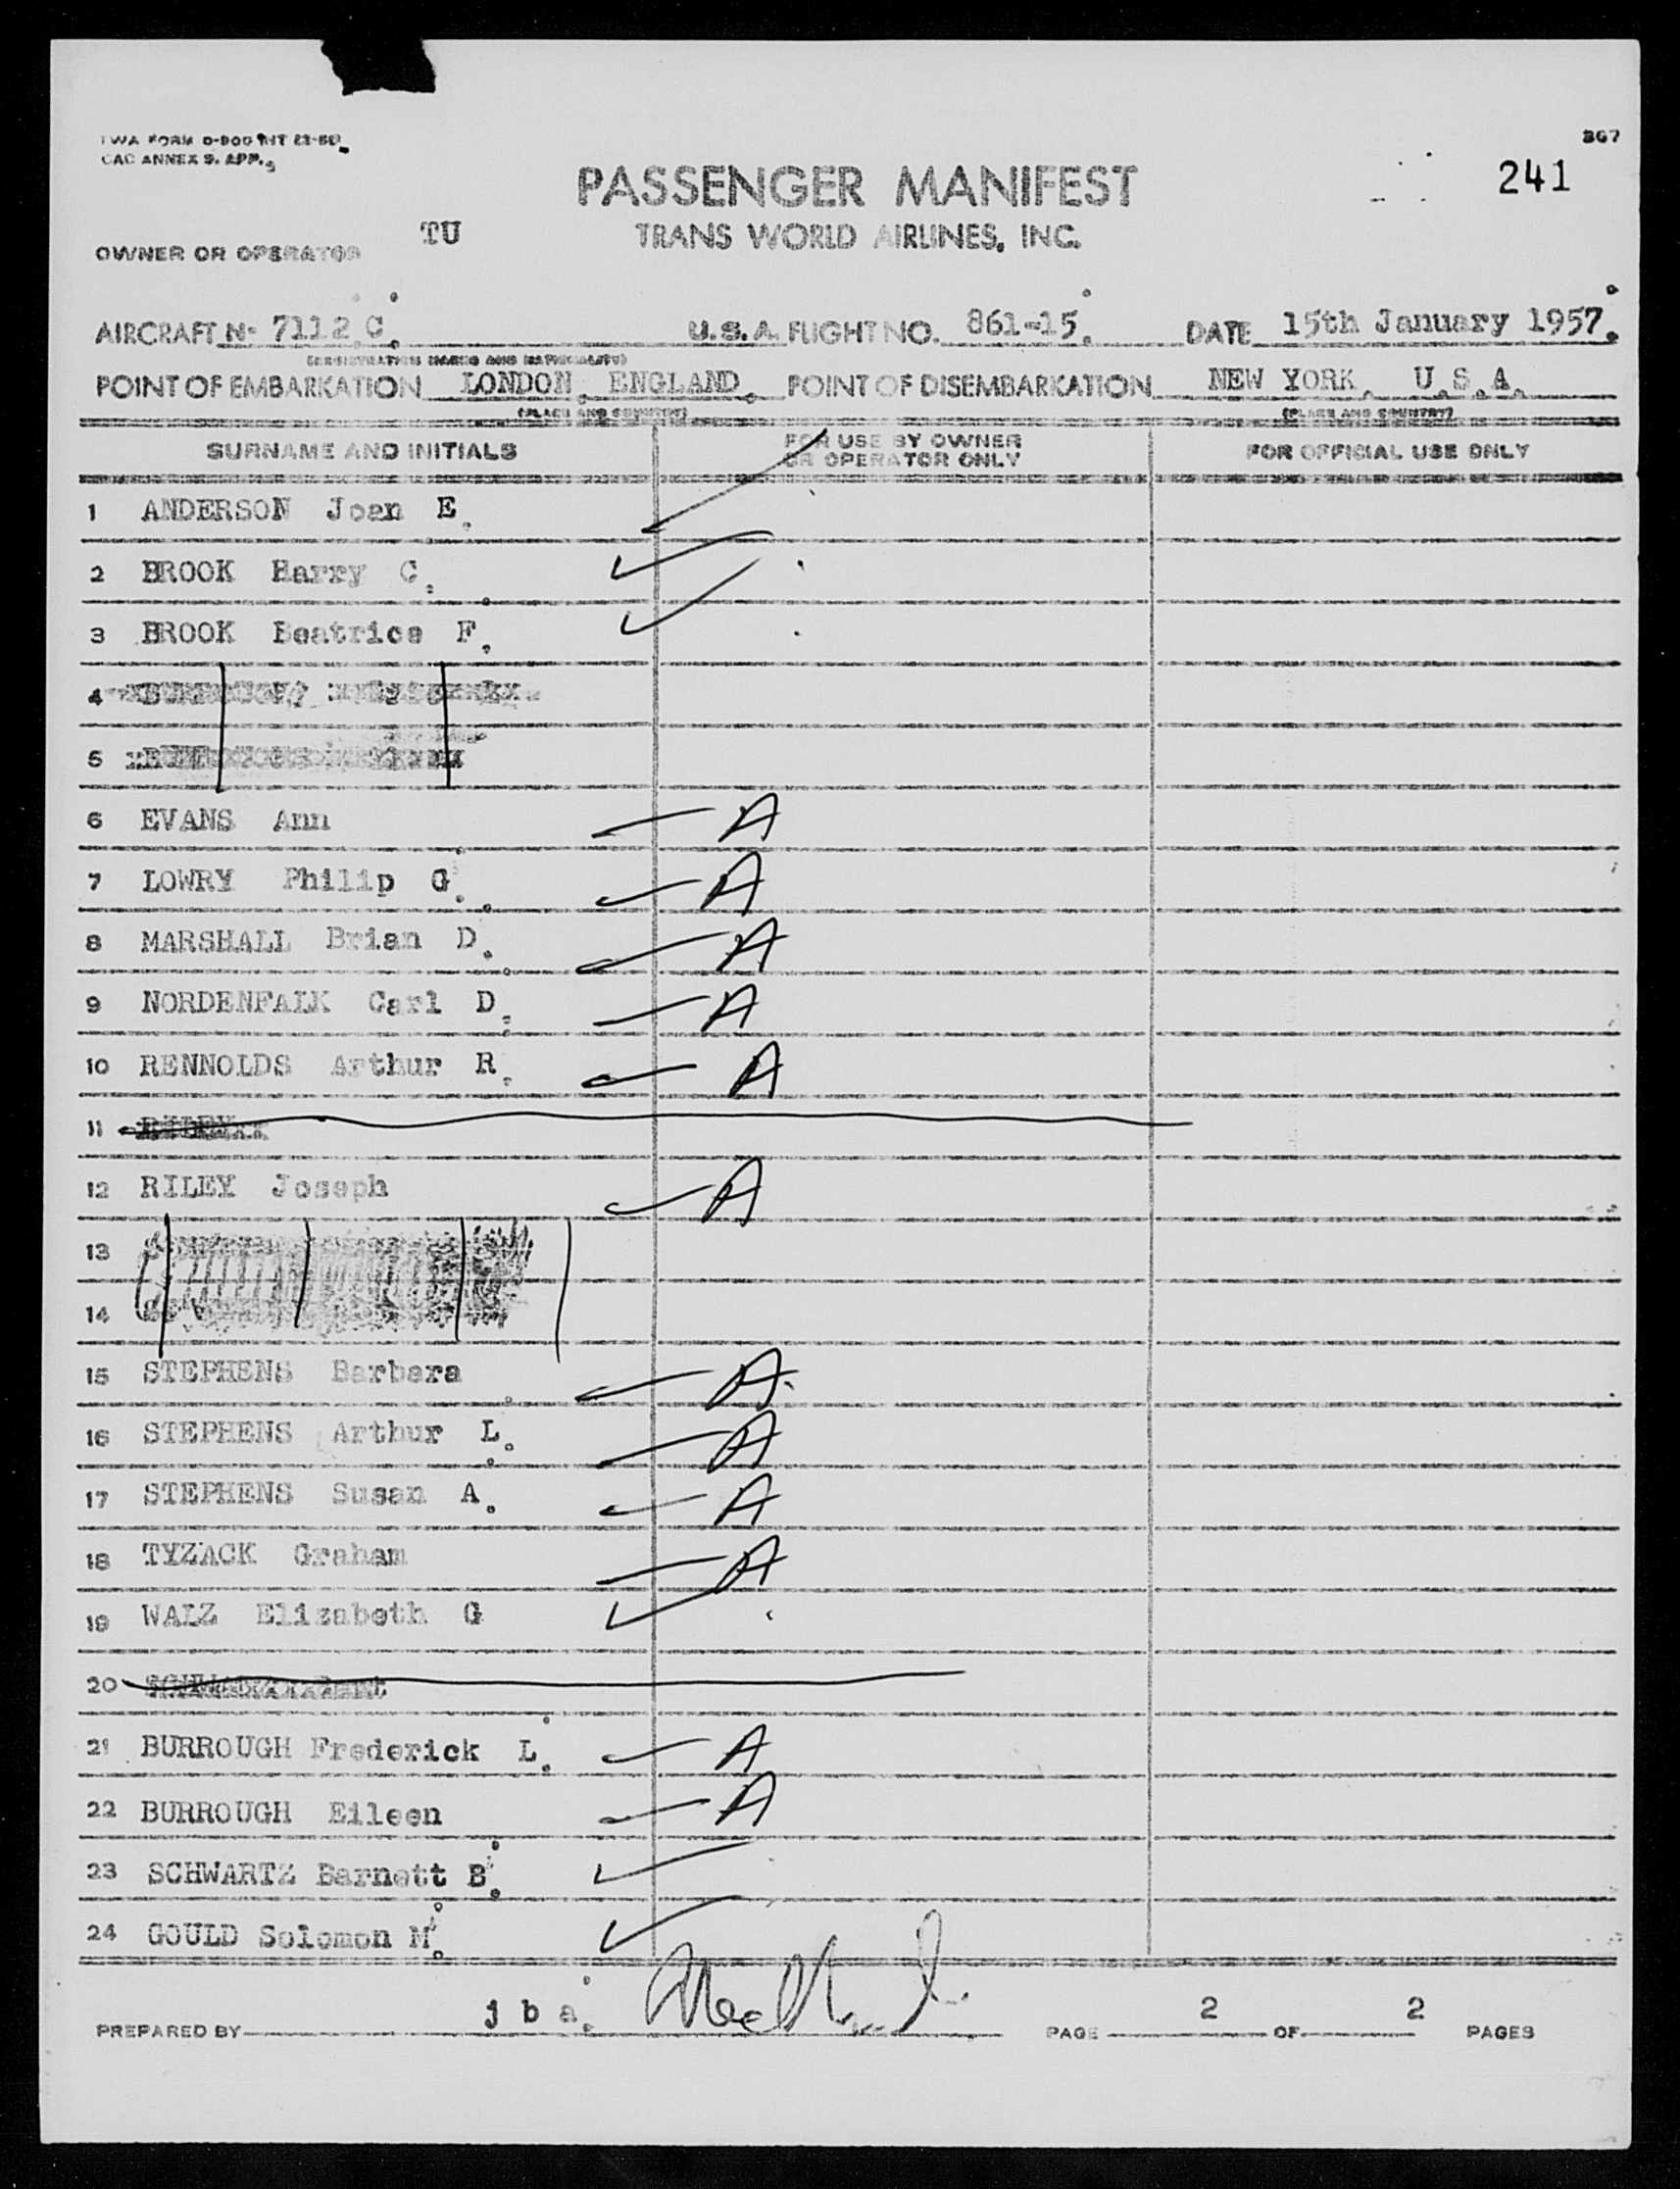 TWA FORM
CAO ANNEX 9. APP.
367
241
PASSENGER MANIFEST
TRANS WORLD AIRLINES, INC.
TU
OWNER OR OPERATOR
AIRCRAFT No 7112 C. U.S.A. FLIGHT NO. 861-15. DATE 15th January 1957.
(REGISTRATION MARKS AND NATIONALITY)
POINT OF EMBARKATION LONDON, ENGLAND. POINT OF DISEMBARKATION NEW YORK, U.S.A.
(PLACE AND COUNTRY) (PLACE AND COUNTRY)
SURNAME AND INITIALS FOR USE BY OWNER OR OPERATOR ONLY FOR OFFICIAL USE ONLY
1 ANDERSON Joan E.
2 BROOK Harry C.
3 BROOK Beatrice F.
4
5
6 EVANS Ann A
7 LOWRY Philip G. A
8 MARSHALL Brian D. A
9 NORDENFALK Carl D. A
10 RENNOLDS Arthur R. A
11
12 RILEY Joseph A
13
14
15 STEPHENS Barbara A
16 STEPHENS Arthur L. A
17 STEPHENS Susan A. A
18 TYZACK Graham A
19 WALZ Elizabeth G
20
21 BURROUGH Frederick L. A
22 BURROUGH Eileen A
23 SCHWARTZ Barnett B.
24 GOULD Solomon M.
PREPARED BY j b a. PAGE 2 OF 2 PAGES